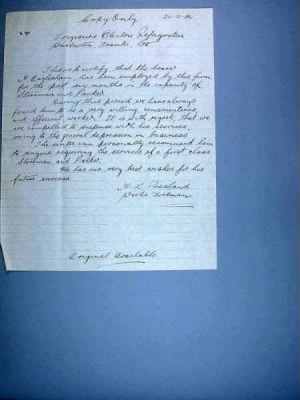 Copy Only
Electrice Refrigerators
This is to notify that the bearer
has been employed by this firm
for the past six months in the capacity of
Storeman and Packer.
During that period we have always
found him to be a very willing, conscientious,
and efficient worker. It is with regret, that we
are compelled to dispense with his services,
owing to the general depression in business.
The writer can personally recommend him
to anyone requiring the services of a first class
Storeman and Packer.
He has our very best wishes for his
future success
Original Available.